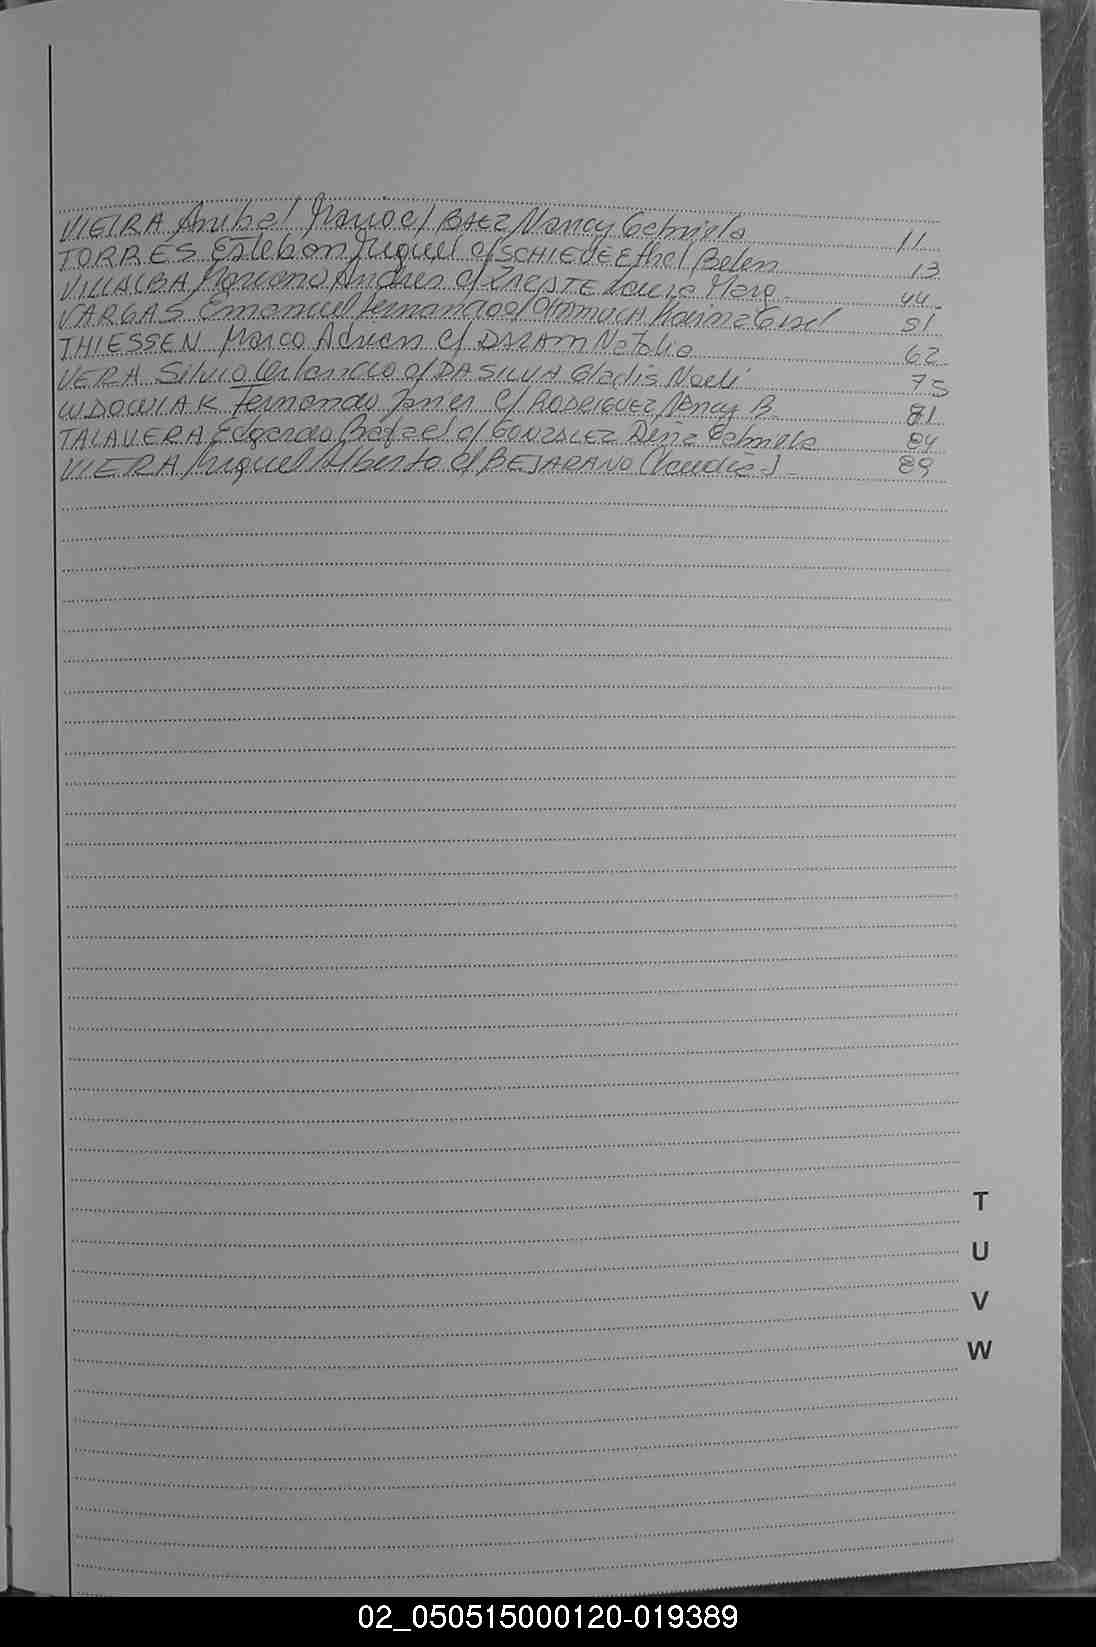 VIEIRA Anibal Mario c/ BAEZ Nancy Gabriela 11
TORRES Esteban Miguel c/ SCHIEDE Ethel Belen 13
VILLALBA Mariano Andres c/ Laura Marg. 44
VARGAS Emanuel Fernando c/ Karina Gisel 51
THIESSEN Marco Adrian c/ Natalia 62
VERA Silvio Orlando c/ DA SILVA Gladis Noeli 75
WDOWIAK Fernando Javier c/ RODRIGUEZ Nancy B. 81
TALAVERA Eduardo Rafael c/ GONZALEZ Gabriela 84
VIERA Miguel Alberto c/ BEJARANO Claudia J. 89
T
U
V
W
02_050515000120-019389